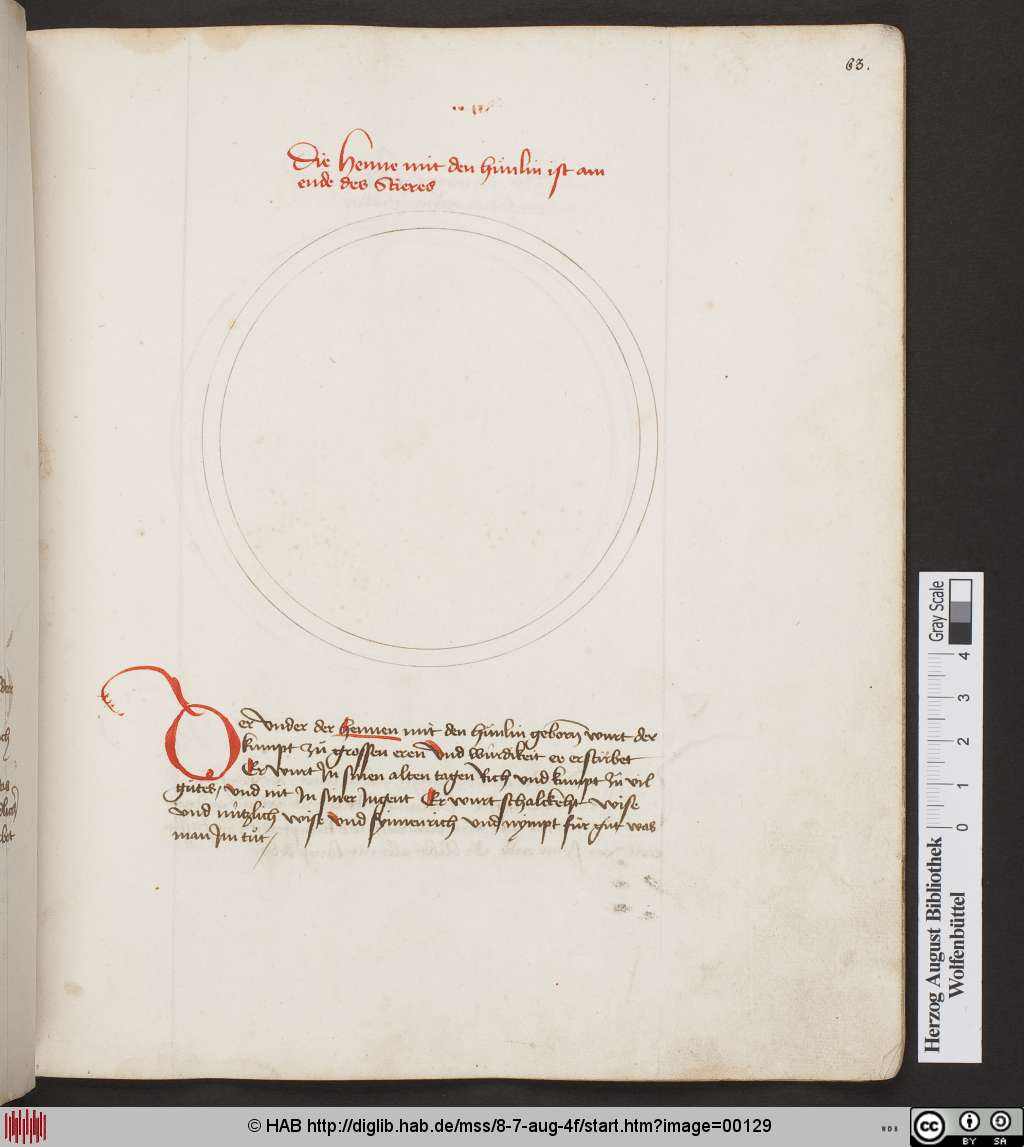 63.
Die henne mit den hünlin ist am
ende des Stieres
Der vnder der hennen mit den hünlin geborn wurt der
kumpt zü grossen eren vnd würdikeit ee er stirbet
Er wurt Jn sinen alten tagen Rich vnd kumpt zü vil
gütes / vnd nit Jn siner Jugent Er wurt schalckeht wise
vnd nützlich wise vnd synnenrich vnd nympt für gut was
man Jm tüt /
Gray Scale
0 1 2 3 4
Herzog August Bibliothek
Wolfenbüttel
© HAB http://diglib.hab.de/mss/8-7-aug-4f/start.htm?image=00129
WDB
cc BY SA